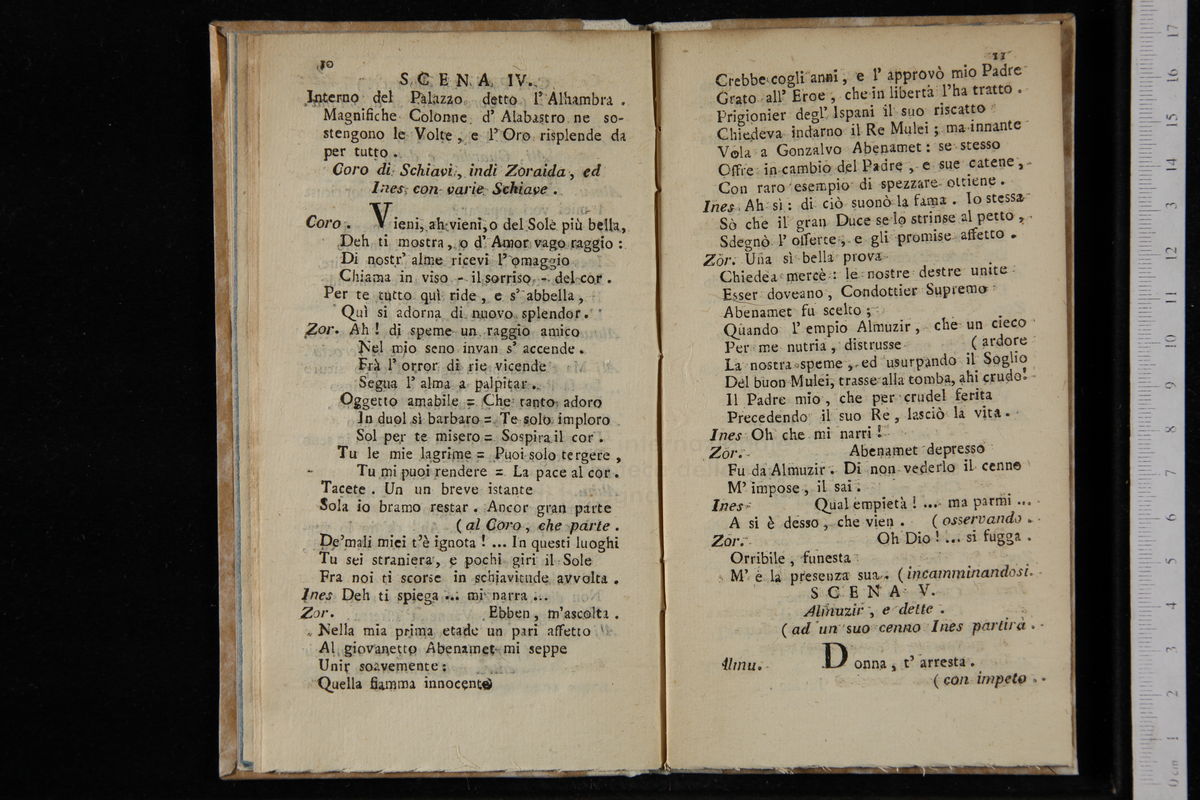 10
SCENA IV.
Interno del Palazzo detto l' Alhambra .
Magnifiche Colonne d' Alabastro ne so-
stengono le Volte, e l' Oro risplende da
per tutto .
Coro di Schiavi, indi Zoraida, ed
Ines con varie Schiave .
Coro . Vieni, ah vieni, o del Sole più bella,
Deh ti mostra, o d' Amor vago raggio :
Di nostr' alme ricevi l' omaggio
Chiama in viso - il sorriso - del cor .
Per te tutto quì ride, e s' abbella,
Quì si adorna di nuovo splendor.
Zor. Ah ! di speme un raggio amico
Nel mio seno invan s' accende .
Frà l' orror di rie vicende
Segua l' alma a palpitar .
Oggetto amabile = Che tanto adoro
In duol sì barbaro = Te solo imploro
Sol per te misero = Sospira il cor .
Tu le mie lagrime = Puoi solo tergere,
Tu mi puoi rendere = La pace al cor .
Tacete . Un un breve istante
Sola io bramo restar . Ancor gran parte
( al Coro, che parte .
De'mali miei t'è ignota ! ... In questi luoghi
Tu sei straniera, e pochi giri il Sole
Fra noi ti scorse in schiavitude avvolta .
Ines Deh ti spiega ... mi narra ...
Zor. Ebben, m'ascolta .
Nella mia prima etade un pari affetto
Al giovanetto Abenamet mi seppe
Unir soavemente :
Quella fiamma innocente
11
Crebbe cogli anni, e l' approvò mio Padre
Grato all' Eroe, che in libertà l'ha tratto .
Prigionier degl' Ispani il suo riscatto
Chiedeva indarno il Re Mulei ; ma innante
Vola a Gonzalvo Abenamet : se stesso
Offre in cambio del Padre, e sue catene,
Con raro esempio di spezzare ottiene .
Ines Ah sì : di ciò suonò la fama . Io stessa
Sò che il gran Duce se lo strinse al petto,
Sdegnò l' offerte, e gli promise affetto .
Zor. Una sì bella prova
Chiedea mercè : le nostre destre unite
Esser doveano, Condottier Supremo
Abenamet fu scelto ;
Quando l' empio Almuzir, che un cieco
Per me nutria, distrusse ( ardore
La nostra speme, ed usurpando il Soglio
Del buon Mulei, trasse alla tomba, ahi crudo!
Il Padre mio, che per crudel ferita
Precedendo il suo Re, lasciò la vita .
Ines Oh che mi narri !
Zor. Abenamet depresso
Fu da Almuzir . Di non vederlo il cenno
M' impose, il sai .
Ines Qual empietà ! ... ma parmi ...
A sì è desso, che vien . ( osservando .
Zor. Oh Dio ! ... si fugga .
Orribile, funesta
M' è la presenza sua . ( incamminandosi.
SCENA V.
Almuzir, e dette .
( ad un suo cenno Ines partirà .
Almu. Donna, t' arresta .
( con impeto .